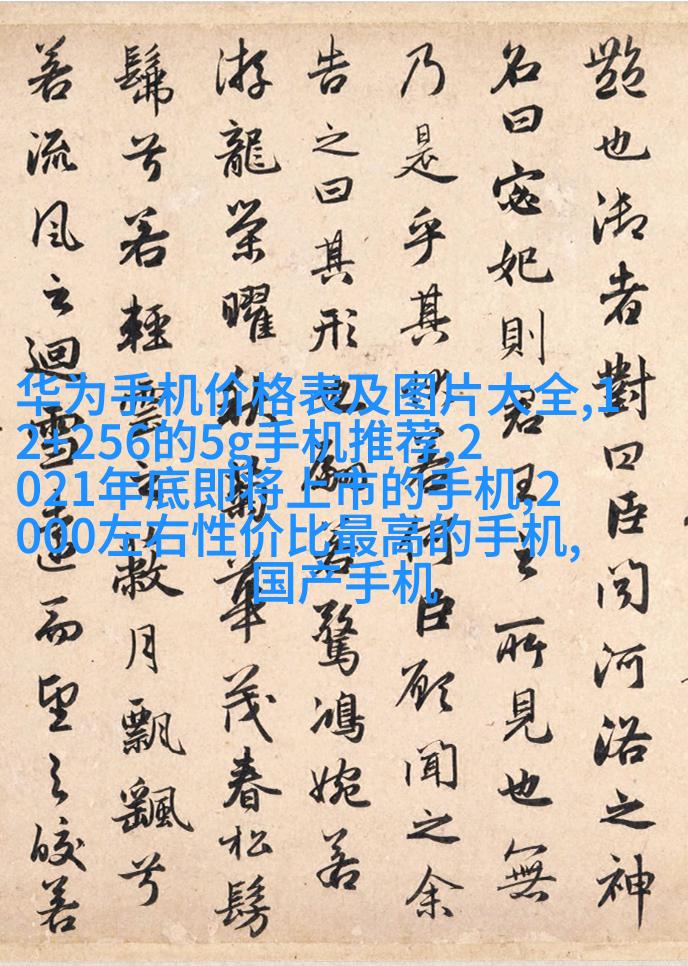 艷也御者對曰臣聞河洛之神
名曰宓妃則君王之所見也無
乃是乎其狀若何臣願聞之余
告之曰其形也翩若驚鴻婉若
游龍榮曜秋菊華茂春松髣
髴兮若輕雲之蔽月飄颻兮
若流風之迴雪遠而望之皎若
华为手机价格表及图片大全,1
2+256的5g手机推荐,2
021年底即将上市的手机,2
000左右性价比最高的手机,
国产手机